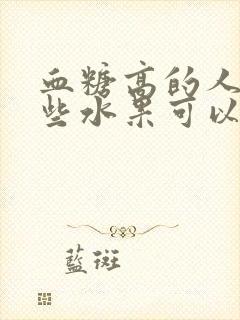 血糖高的人
些水果可以
蓝斑